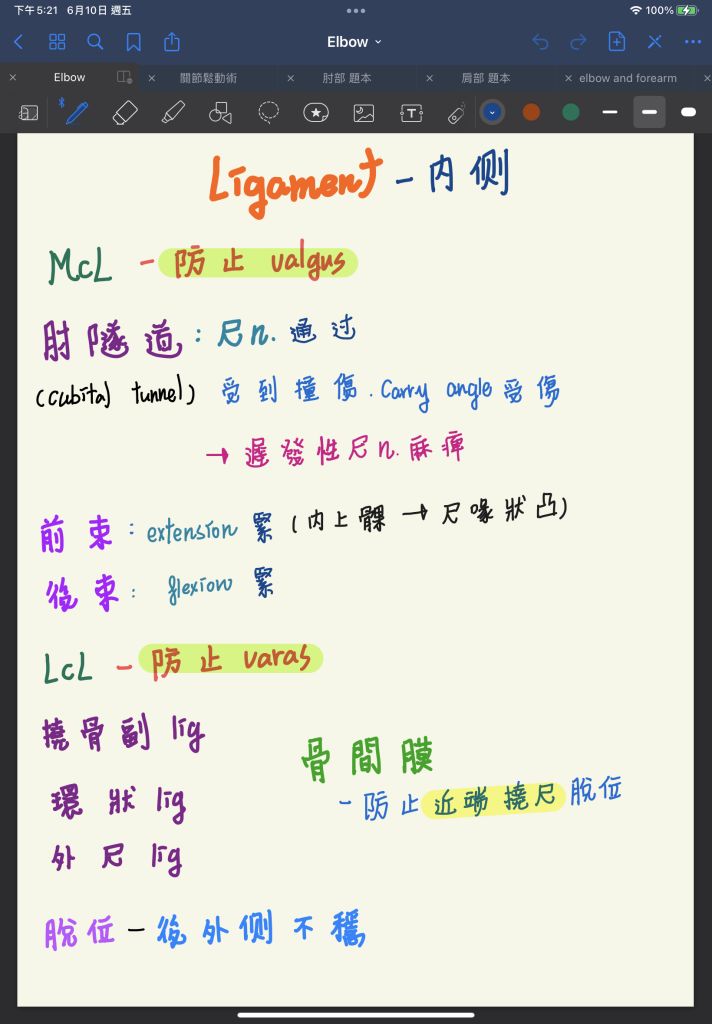 下午5:21 6月10日 週五
100%
Elbow
Elbow
關節鬆動術
肘部 題本
肩部 題本
elbow and forearm
Ligament - 內側
McL - 防止 valgus
肘隧道 : 尺n. 通過
(cubital tunnel) 受到撞傷. Carry angle 受傷
→ 遲發性尺n. 麻痺
前束 : extension 緊 (內上髁 → 尺喙狀凸)
後束 : flexion 緊
LcL - 防止 varas
撓骨副 lig
環狀 lig
外尺 lig
骨間膜
- 防止近端撓尺脫位
脫位 - 後外側不穩